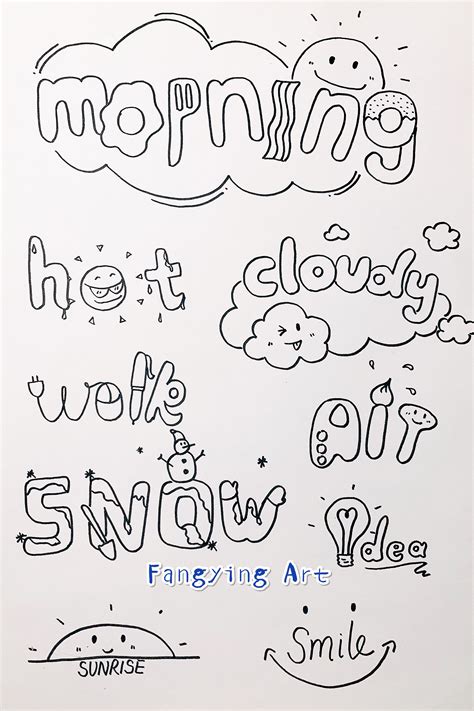 morning
hot
cloudy
work
ArT
SNOW
Idea
Fangying Art
SUNRISE
Smile